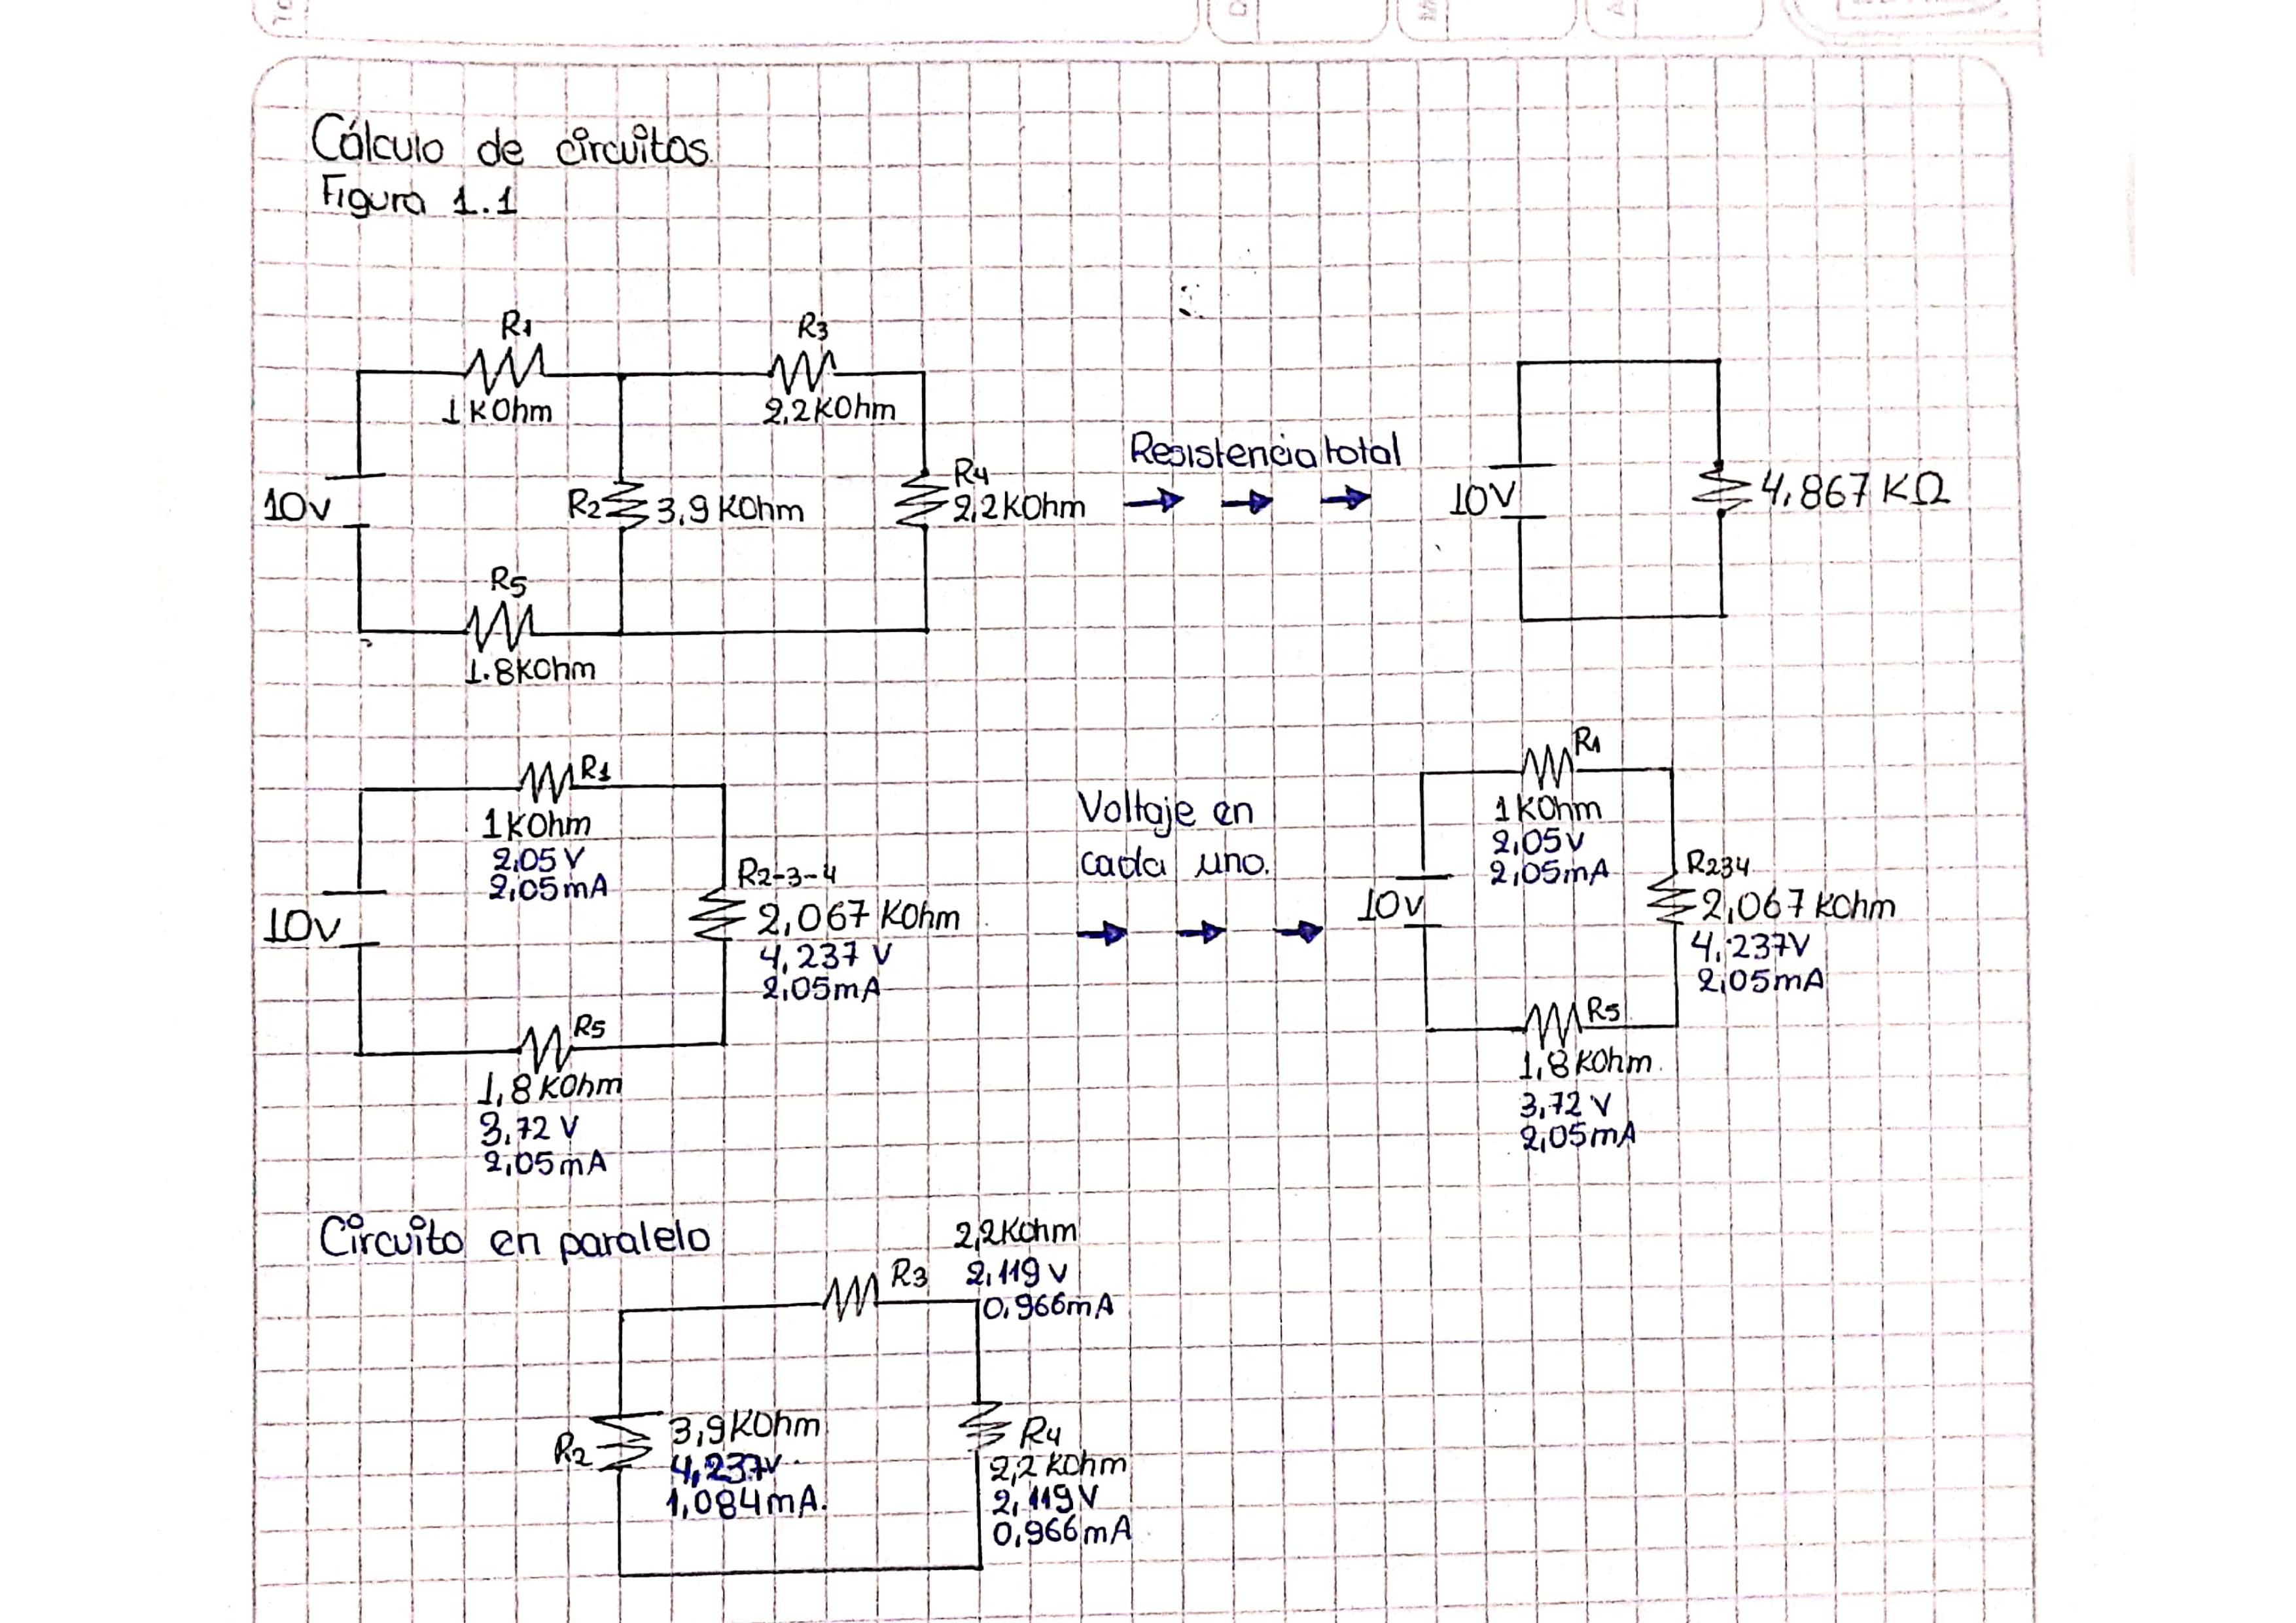 Cálculo de circuitos.
Figura 1.1
R1
1 KOhm
R3
2,2 KOhm
10v
R2
3,9 KOhm
R4
2,2 KOhm
R5
1.8 KOhm
Resistencia total
10V
4,867 KΩ
R1
1 KOhm
2,05 V
2,05 mA
10v
R2-3-4
2,067 KOhm
4,237 V
2,05 mA
R5
1,8 KOhm
3,72 V
2,05 mA
Voltaje en
cada uno.
R1
1 KOhm
2,05 v
2,05 mA
10v
R234
2,067 KOhm
4,237 V
2,05 mA
R5
1,8 KOhm.
3,72 V
2,05 mA
Circuito en paralelo
R3
2,2 KOhm
2,119 v
0,966 mA
R2
3,9 KOhm
4,237 v.
1,084 mA.
R4
2,2 KOhm
2,119 V
0,966 mA